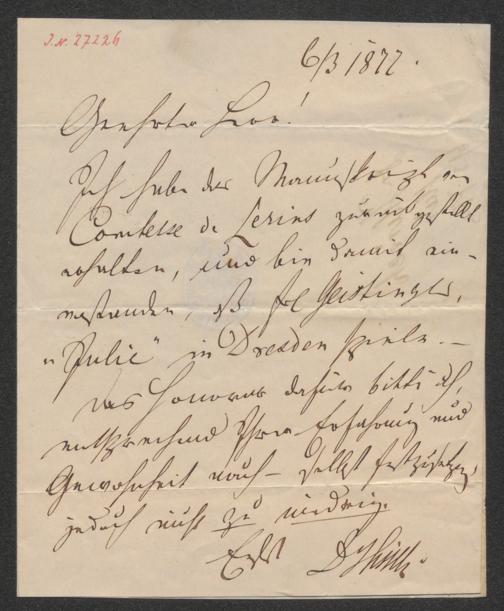 J.N. 27226
6/3 1877.
Geehrter Herr!
Ich habe das Manuskript von
Comtesse de Lerins zurückgestellt
erhalten, und bin damit ein-
verstanden, daß Frl Geistinger,
"Julie" in Dresden spiele. –
Das Honorar dafür bitte ich,
entsprechend Ihrer Erfahrung und
Gewohnheit nach – selbst festzusetzen,
jedoch nicht zu niedrig.